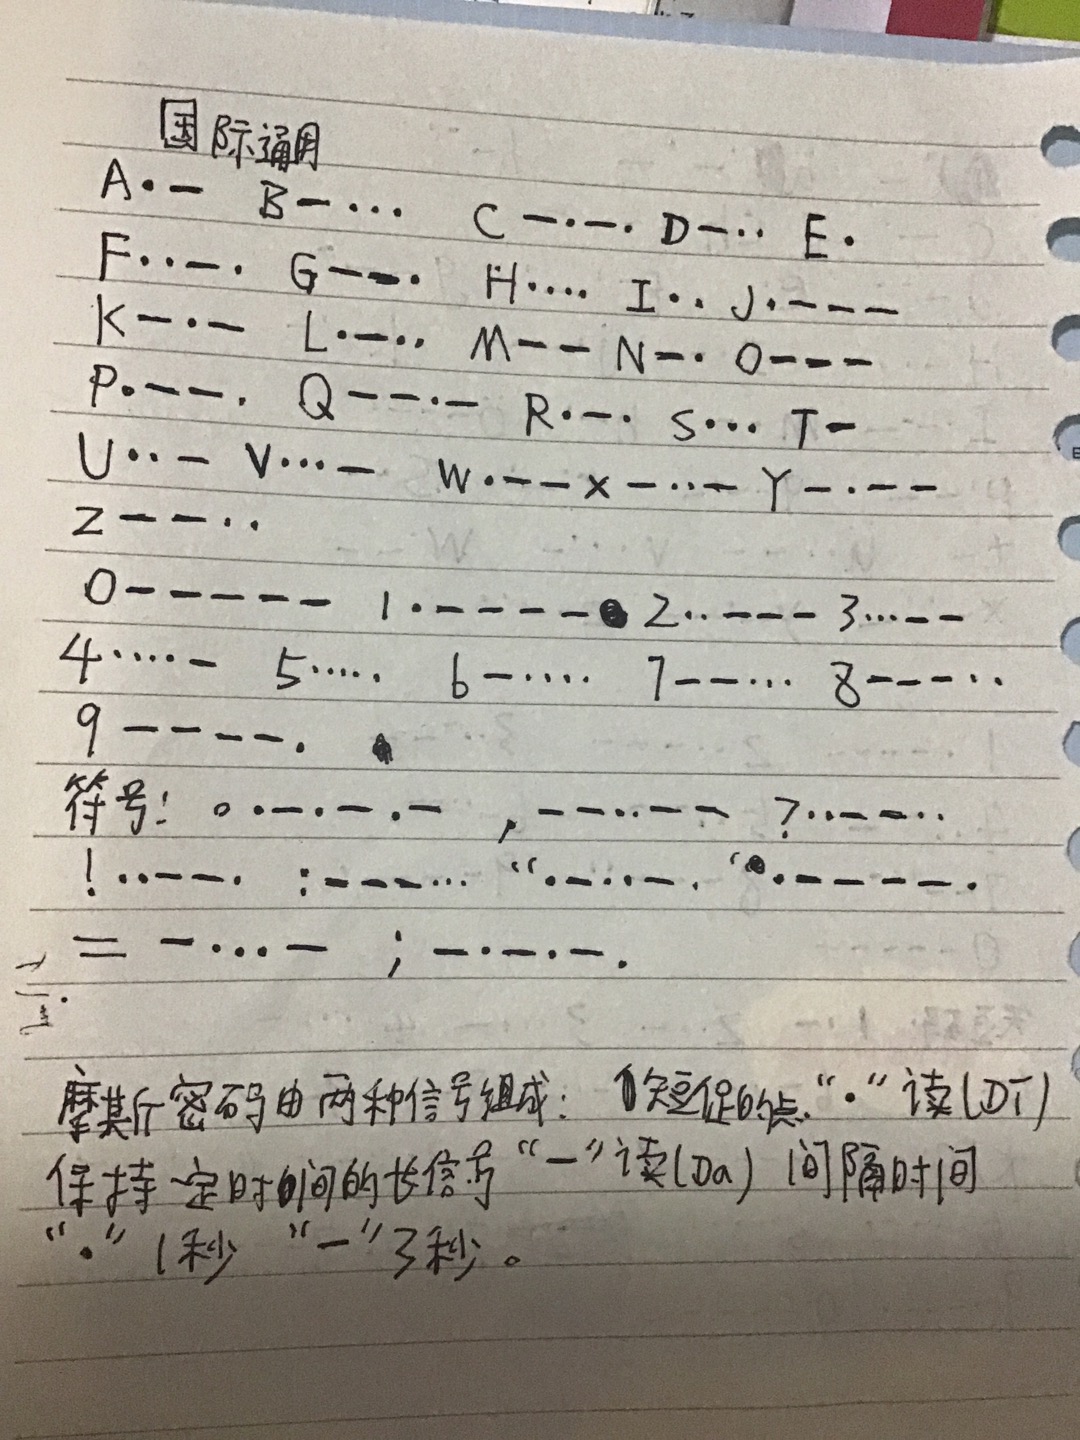 国际通用
A·— B—··· C—·—· D—·· E·
F··—· G——· H···· I·· J·———
K—·— L·—·· M—— N—· O———
P·——· Q——·— R·—· S··· T—
U··— V···— W·—— X—··— Y—·——
Z——··
0————— 1·———— 2··——— 3···——
4····— 5····· 6—···· 7——··· 8———··
9————·
符号: 。·—·—·— ,——··—— ?··——··
!··——· :———··· “·—··—· ‘·————·
= —···— ;—·—·—·
摩斯密码由两种信号组成: 短促的点“·”读(DI)
保持一定时间的长信号“—”读(Da) 间隔时间
“·”1秒 “—”3秒。